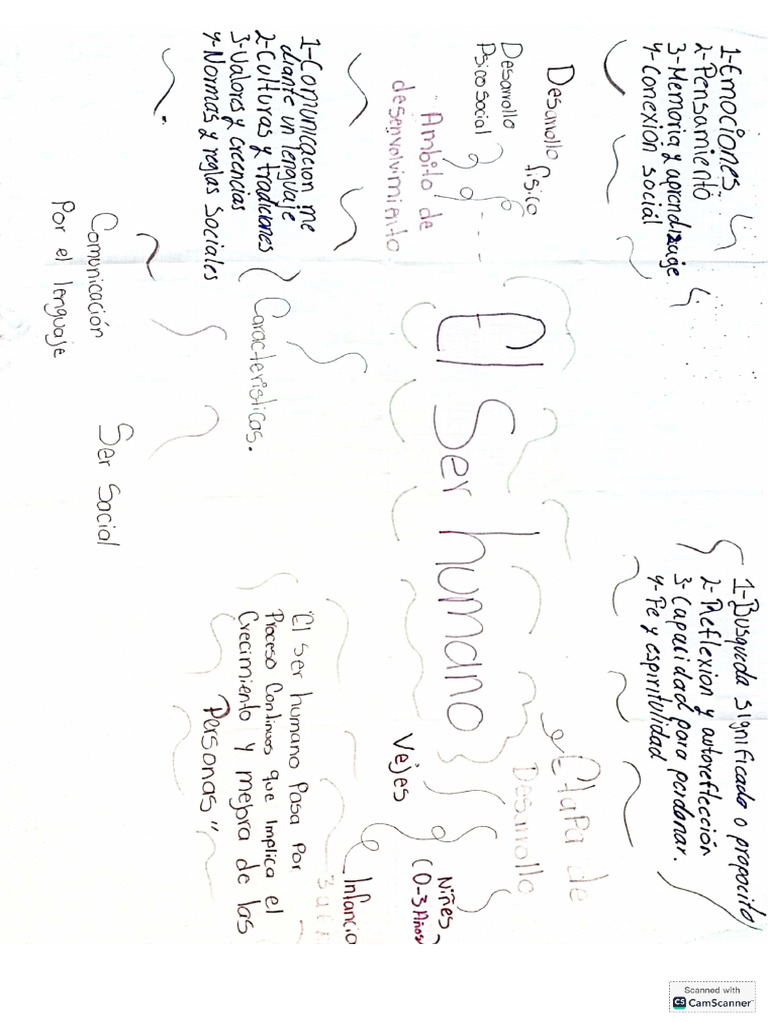 1-Emociones.
2-Pensamiento
3-Memoria y aprendizaje
4-Conexion social
1-Busqueda significado o propocito
2-Reflexion y autoreflección
3-Capacidad para perdonar.
4-Fe y espiritulidad
Desarrollo físico
Desarrollo
Psicosocial
Ambito de
desenvolvimiento
El Ser humano
Etapa de
Desarrollo
Vejes
Niñes
(0-3 Años
Infancia
1-Comunicacion me
diante un lenguaje
2-Culturas y tradiciones
3-Valores y creencias
4-Normas y reglas Sociales
Caracteristicas.
"El ser humano Pasa Por
Proceso Continuos que implica el
Crecimiento y mejora de las
Personas"
Comunicación
Por el lenguaje
Ser Social
Scanned with
CS CamScanner